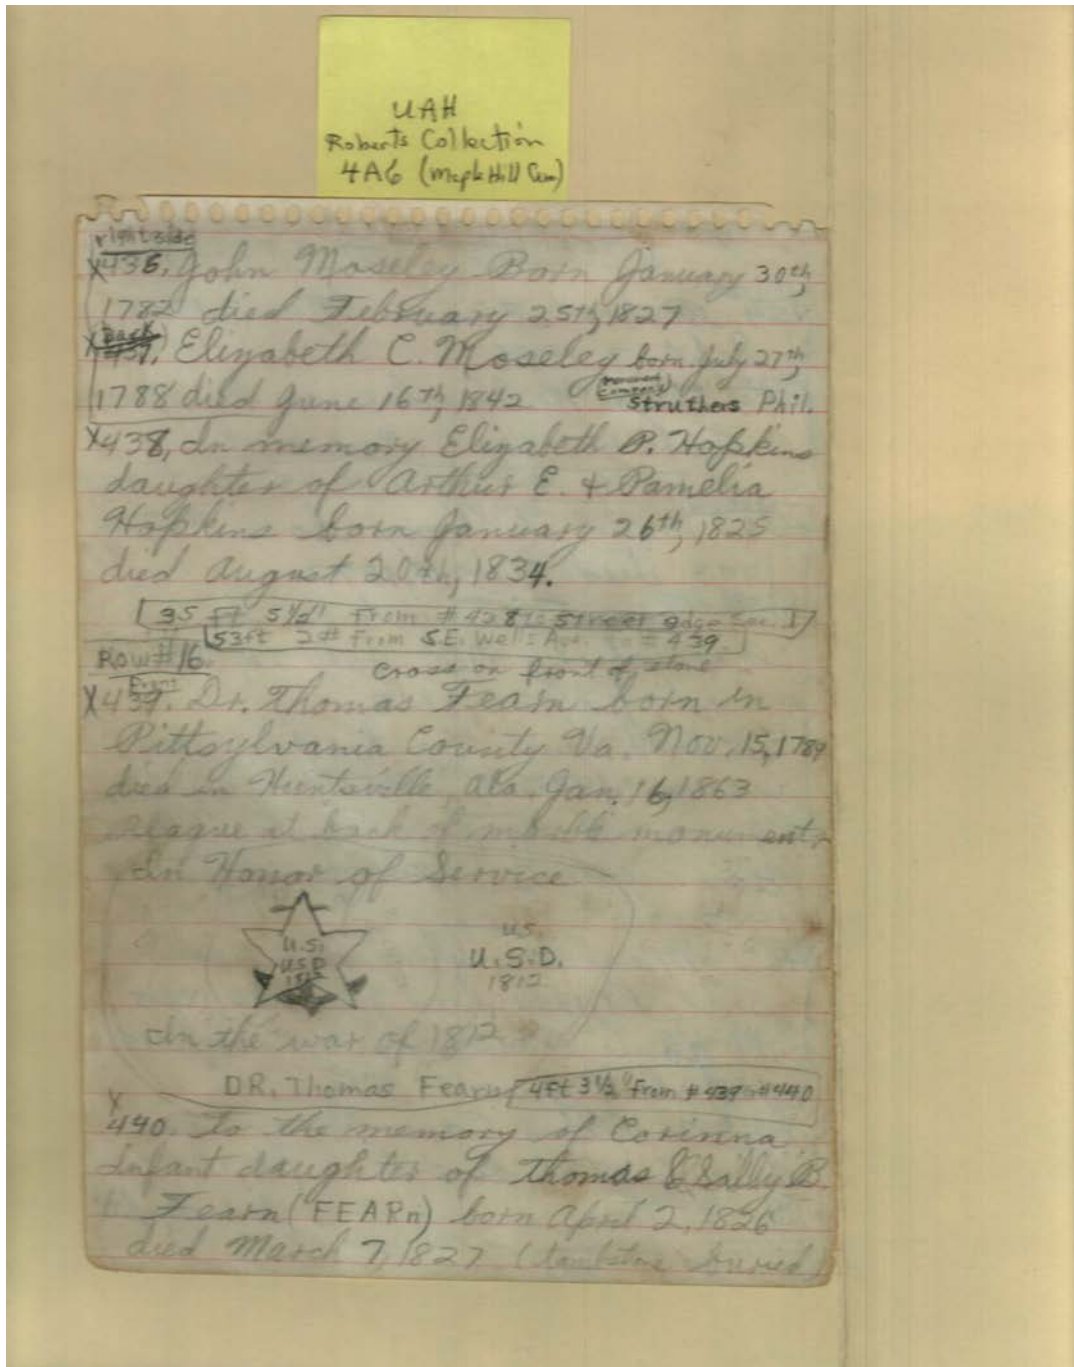 UAH
Roberts Collection
4A6 (Maple Hill Cem)
right side
X436. John Moseley Born January 30th,
1782 died February 25th, 1827
X back
437. Elizabeth C. Moseley born July 27th,
1788 died June 16th, 1842 Struthers Phil.
X438, In memory Elizabeth P. Hopkins
daughter of Arthur E. & Pamelia
Hopkins born January 26th, 1825
died August 20th, 1834.
35 ft 5½" From # 438 to street edge Sec. 1
53ft 2 From S.E. Wells Ave. # 439
Row #16. Cross on front of stone
Front
X439. Dr. Thomas Fearn born in
Pittsylvania County Va. Nov. 15, 1789
died in Huntsville, Ala. Jan. 16, 1863
at back of marble monument,
In Honor of Service
U.S.
U.S.D
1812
U.S.
U.S.D.
1812
In the war of 1812
DR. Thomas Fearn 4ft 3½" From # 439 #440
X
440. To the memory of Corinna
Infant daughter of Thomas & Sally B
Fearn (FEARn) born April 2, 1826
died March 7, 1827 (tombstone buried